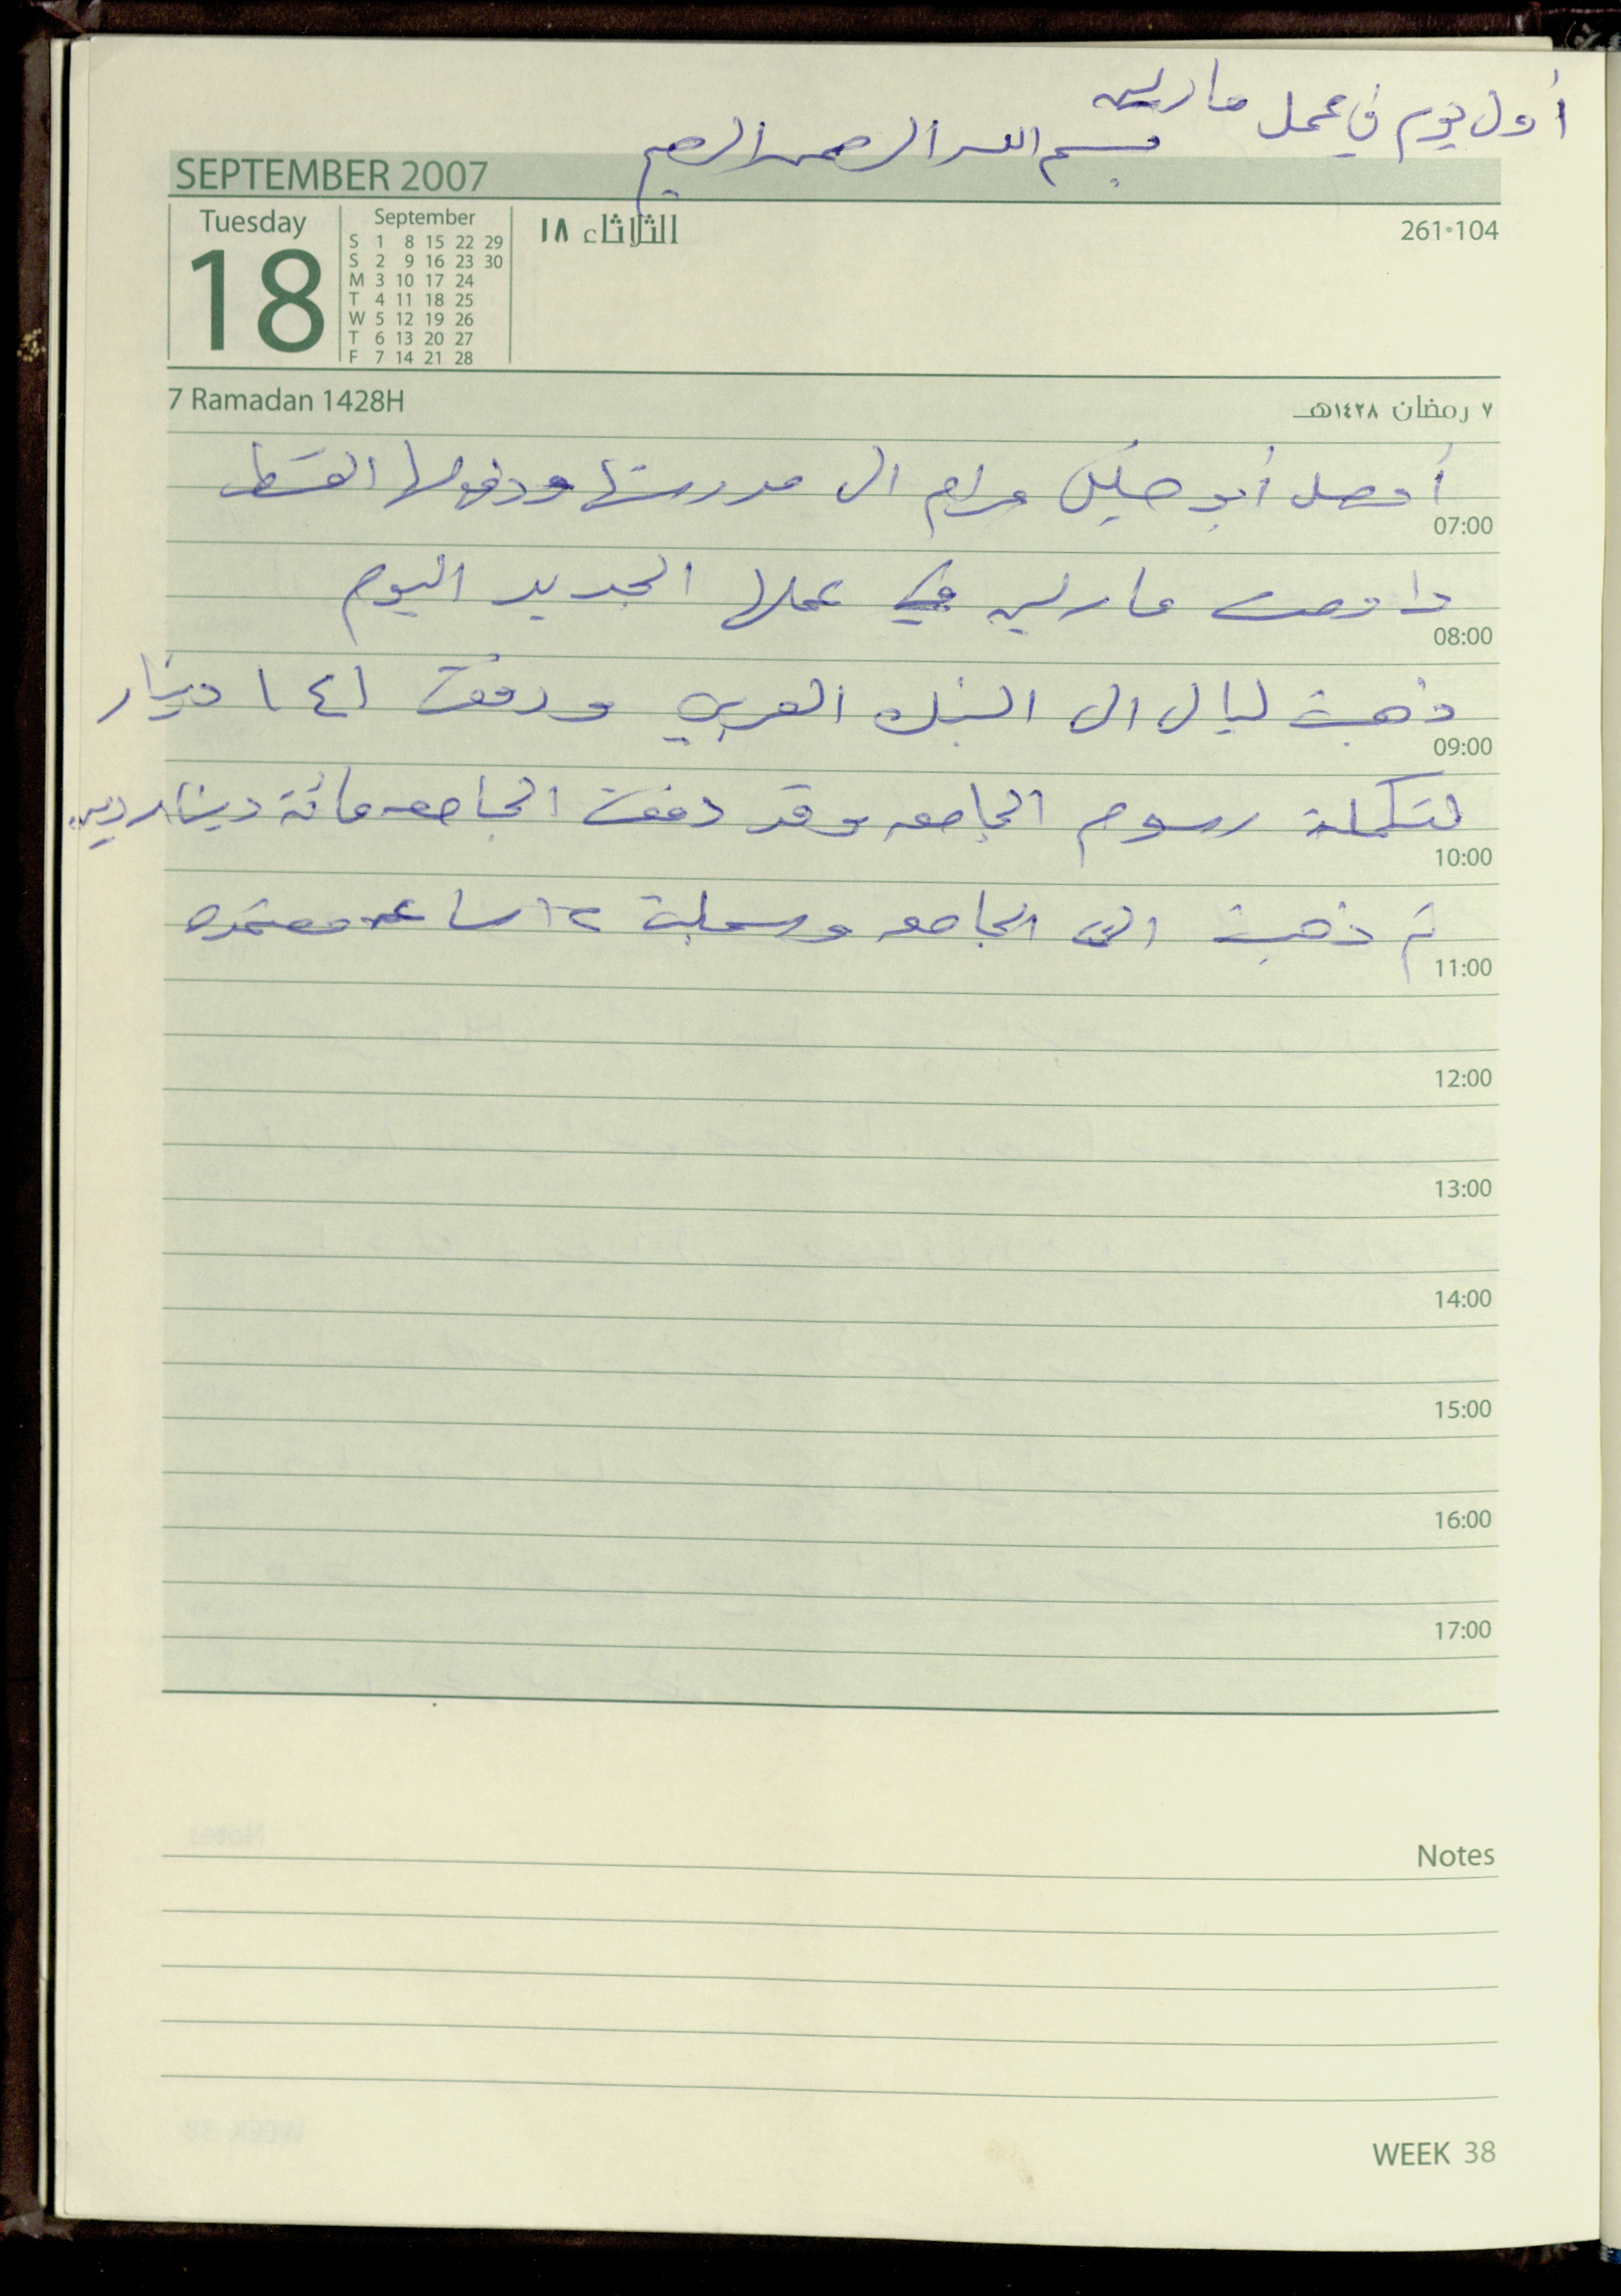 أول يوم في عمل مارلين
بسم الله الرحمن الرحيم
SEPTEMBER 2007
Tuesday
18
September
S 1 8 15 22 29
S 2 9 16 23 30
M 3 10 17 24
T 4 11 18 25
W 5 12 19 26
T 6 13 20 27
F 7 14 21 28
الثلاثاء ١٨
261•104
7 Ramadan 1428H
٧ رمضان ١٤٢٨هـ
أبو مرام الى مدرستها القسط
07:00
داومت مارلين في عملها الجديد اليوم
08:00
ذهبت ليال الى البنك العربي ودفعت ١٤١ دينار
09:00
لتكملة رسوم الجامعه وقد دفعت الجامعه مائة دينار
10:00
ثم ذهبت الى الجامعه وسجلت ١٢ ساعه معتمده
11:00
12:00
13:00
14:00
15:00
16:00
17:00
Notes
WEEK 38